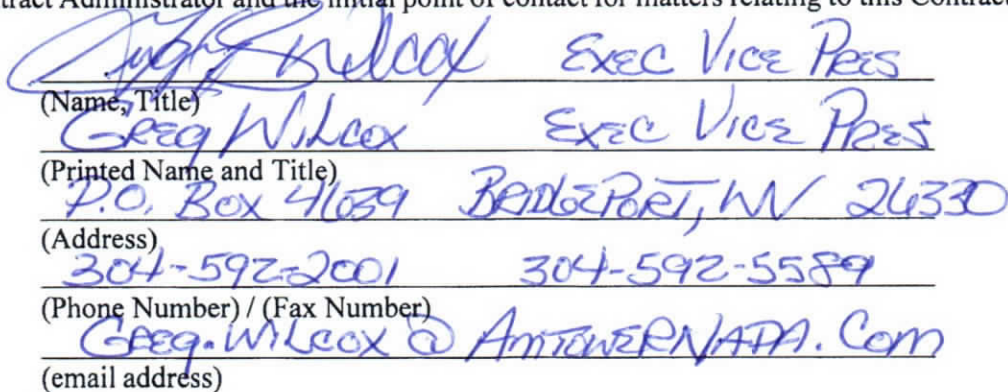 tract Administrator and the initial point of contact for matters relating to this Contract
Wilcox Exec Vice Pres
(Name, Title)
Greg Wilcox Exec Vice Pres
(Printed Name and Title)
P.O. Box 4639 Bridgeport, WV 26330
(Address)
304-592-2001 304-592-5589
(Phone Number) / (Fax Number)
Greg.Wilcox@AmtowerNAPA.Com
(email address)